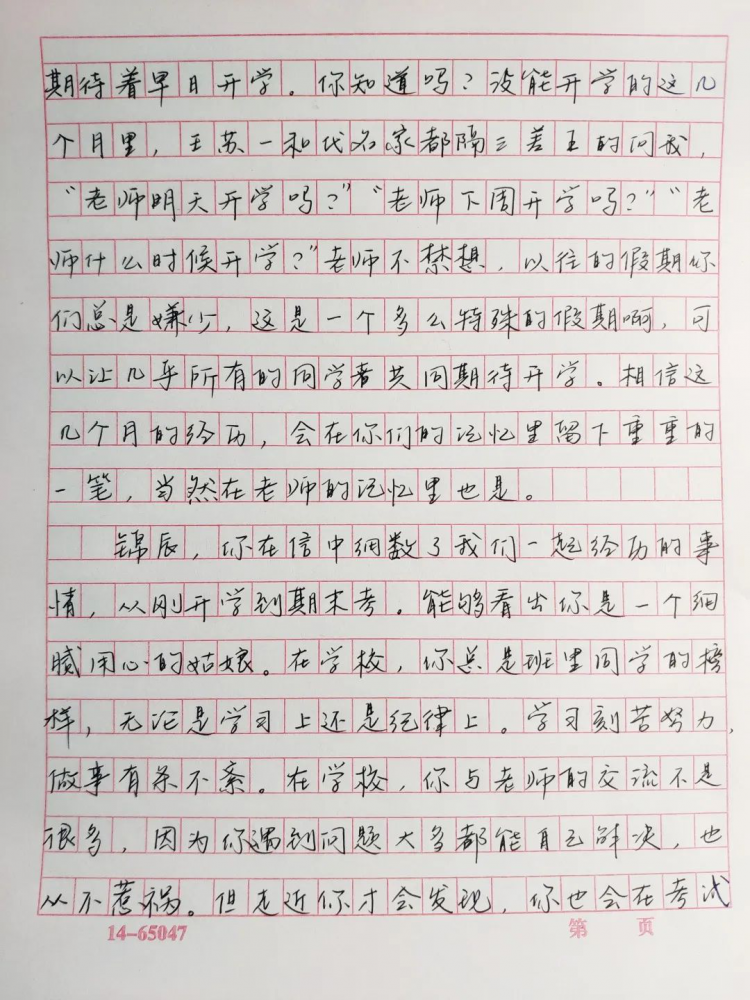 期待着早日开学。你知道吗？没能开学的这几
个月里，王苏一和代名家都隔三差五的问我，
“老师明天开学吗？”“老师下周开学吗？”“老
师什么时候开学？”老师不禁想，以往的假期你
们总是嫌少，这是一个多么特殊的假期啊，可
以让几乎所有的同学者共同期待开学。相信这
几个月的经历，会在你们的记忆里留下重重的
一笔，当然在老师的记忆里也是。
锦辰，你在信中细数了我们一起经历的事
情，从刚开学到期末考。能够看出你是一个细
腻用心的姑娘。在学校，你总是班里同学的榜
样，无论是学习上还是纪律上。学习刻苦努力，
做事有条不紊。在学校，你与老师的交流不是
很多，因为你遇到问题大多都能自己解决，也
从不惹祸。但走近你才会发现，你也会在考试
14-65047
第 页